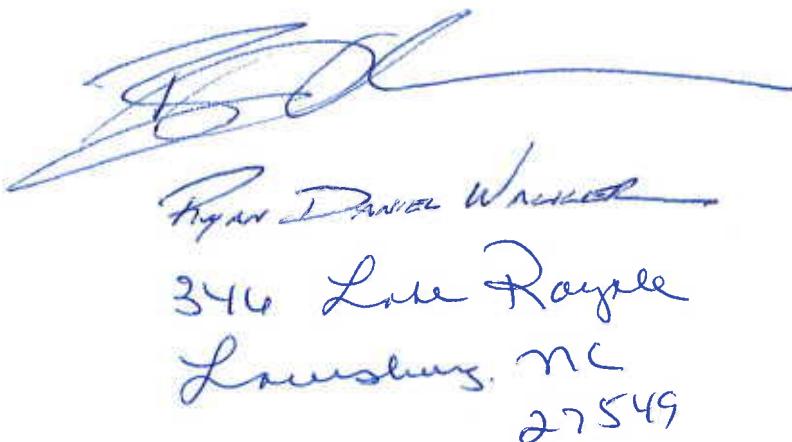 Ryan Daniel Walker
346 Lake Royale
Louisburg, NC
27549